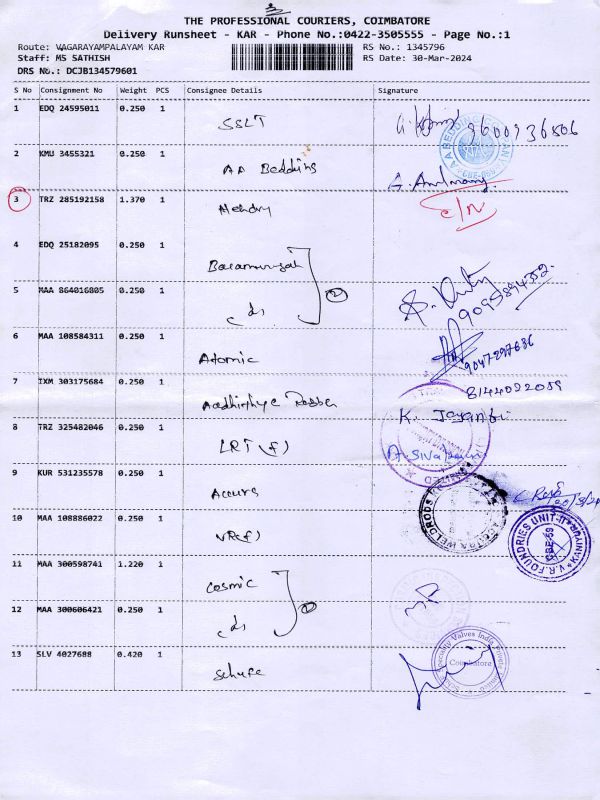 THE PROFESSIONAL COURIERS, COIMBATORE
Delivery Runsheet - KAR - Phone No.:0422-3505555 - Page No.:1
Route: VAGARAYAMPALAYAM KAR
RS No.: 1345796
Staff: MS SATHISH
RS Date: 30-Mar-2024
DRS No.: DCJB134579601
S No Consignment No Weight PCS Consignee Details Signature
1 EDQ 24595011 0.250 1 SSLT 9600936506
2 KMU 3455321 0.250 1 AA Bedding
3 TRZ 285192158 1.370 1 Hendry C/N
4 EDQ 25182095 0.250 1
5 MAA 864016805 0.250 1 2
6 MAA 108584311 0.250 1 Atomic 9047297686
7 IXM 303175684 0.250 1 8144092059
K. Jayanthi
8 TRZ 325482046 0.250 1 LRT (F)
9 KUR 531235578 0.250 1 Accurs
10 MAA 108886022 0.250 1 VR(F)
V.R.FOUNDRIES UNIT-II
11 MAA 300598741 1.220 1 Cosmic
12 MAA 300606421 0.250 1
13 SLV 4027688 0.420 1
Specialty Valves India Private
Coimbatore